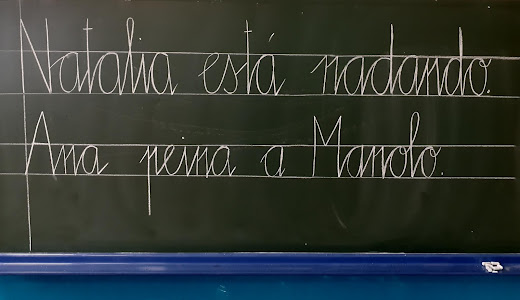 Natalia está nadando.
Ana peina a Manolo.